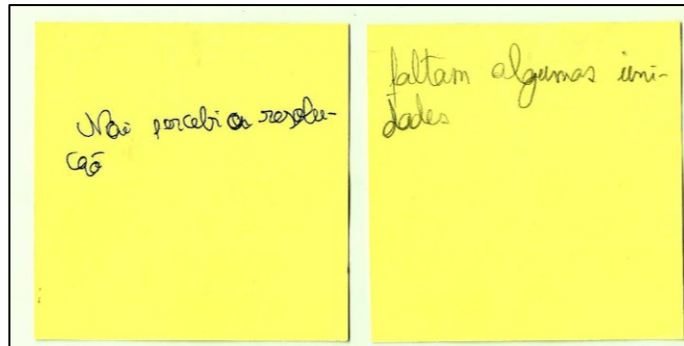 Não percebi a resolu-
ção
faltam algumas uni-
dades